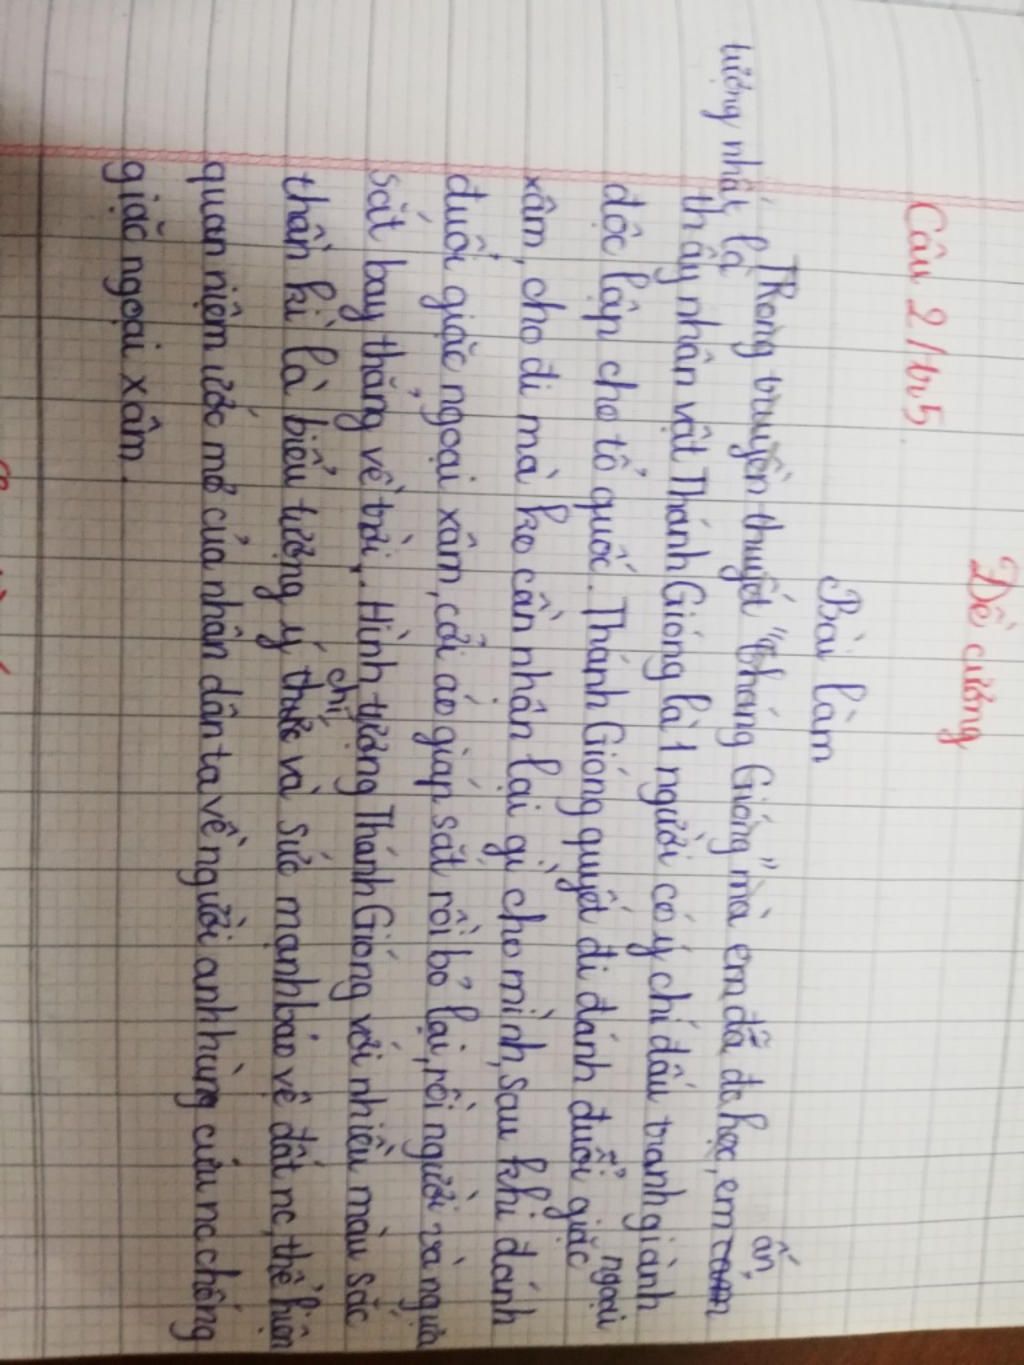 Đề cương
Câu 2/tr5.
Bài làm
TRong truyền thuyết "Thánh Gióng" mà em đã đc học, em ấn
tượng nhất là
thấy nhân vật Thánh Gióng là 1 người có ý chí đấu tranh giành
độc lập cho tổ quốc. Thánh Gióng quyết đi đánh đuổi giặc ngoại
xâm, cho đi mà ko cần nhận lại gì cho mình, sau khi đánh
đuổi giặc ngoại xâm, cởi áo giáp sắt rồi bỏ lại, rồi người và ngựa
sắt bay thẳng về trời. Hình tượng Thánh Gióng với nhiều màu sắc
thần kì là biểu tượng ý chí và sức mạnh bảo vệ đất nc, thể hiện
quan niệm ước mơ của nhân dân ta về người anh hùng cứu nc chống
giặc ngoại xâm.